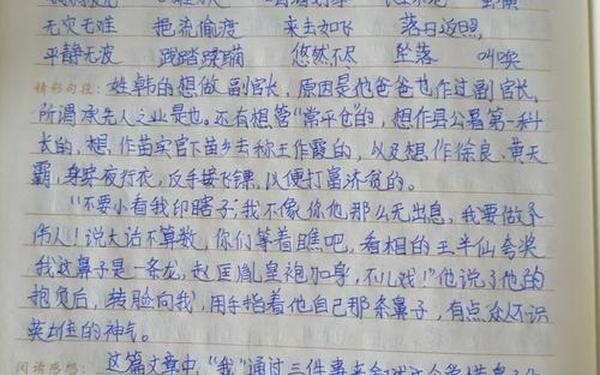 无灾无难 把流偷渡 来去如飞 落日返照
平静无波 践踏蹂躏 悠然不尽 坠落 叫唤
精彩句段: 姓韩的想做副官长,原因是他爸爸也作过副官长,
所谓承先人之业是也。还有想管“常平仓”的,想作县公署第一科科
长的,想作苗实官下苗乡去称王作霸的,以及想作徐良、黄天
霸,身穿夜行衣,反手接飞镖,以便打富济贫的。
“不要小看我印瞎子,我不像你他那么无出息,我要做个
伟人!说大话不算数,你们等着瞧吧,看相的王半仙夸奖
我这鼻子是一条龙,赵匡胤皇袍加身,不儿戏!”他说了他的
抱负后,转脸向我,用手指着他自己那条鼻子,有点众人不识
英雄的神气。
阅读感想: 这篇文章中,“我”通过三件事来